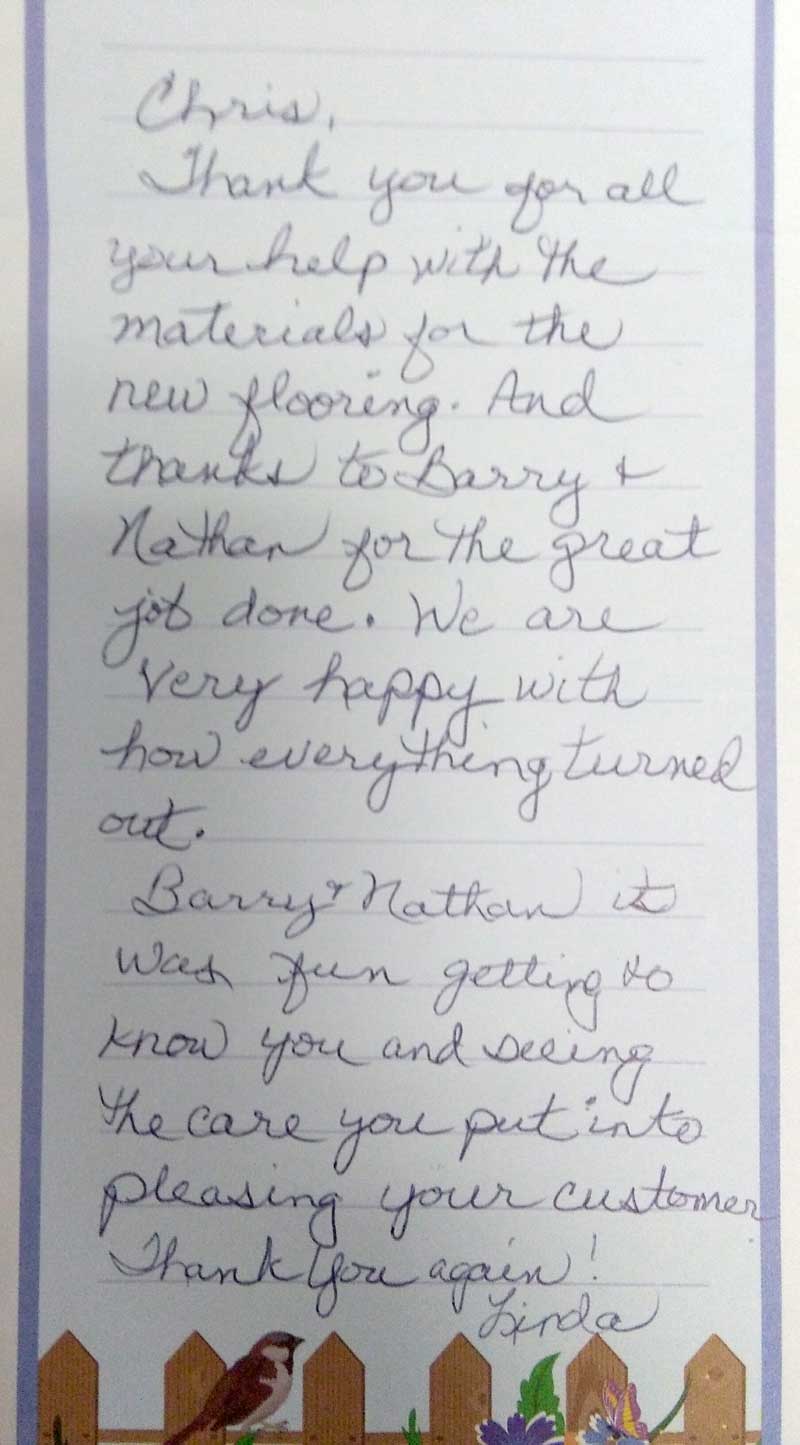 Chris,
Thank you for all
your help with the
materials for the
new flooring. And
thanks to Barry &
Nathan for the great
job done. We are
very happy with
how everything turned
out.
Barry & Nathan it
was fun getting to
know you and seeing
the care you put into
pleasing your customer
Thank You again!
Linda